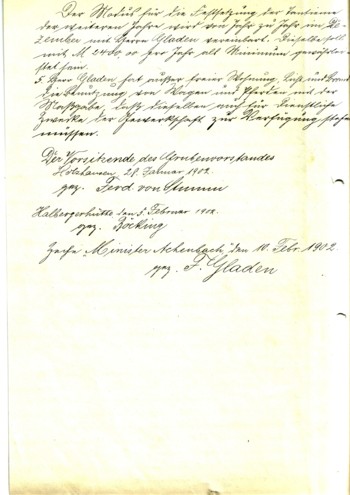 Der Modus für die Festsetzung der Tantieme
der weiteren Jahre wird von Jahr zu Jahr im De-
zember mit Herrn Gladen vereinbart. Dieselbe soll
mit M 2400,00 per Jahr als Minimum gewährlei-
stet sein.
5. Herr Gladen hat außer freier Wohnung, Licht und Brand
die Benutzung von Wagen und Pferden mit der
Maßgabe, daß dieselben auch für dienstliche
Zwecke der Gewerkschaft zur Verfügung stehen
müssen.
Der Vorsitzende des Grubenvorstandes
Holzhausen 28. Januar 1902.
gez. Ferd von Stumm
Halbergerhütte den 5. Februar 1902.
gez. Böcking
Zeche Minister Achenbach, den 10. Febr. 1902
gez. F. Gladen